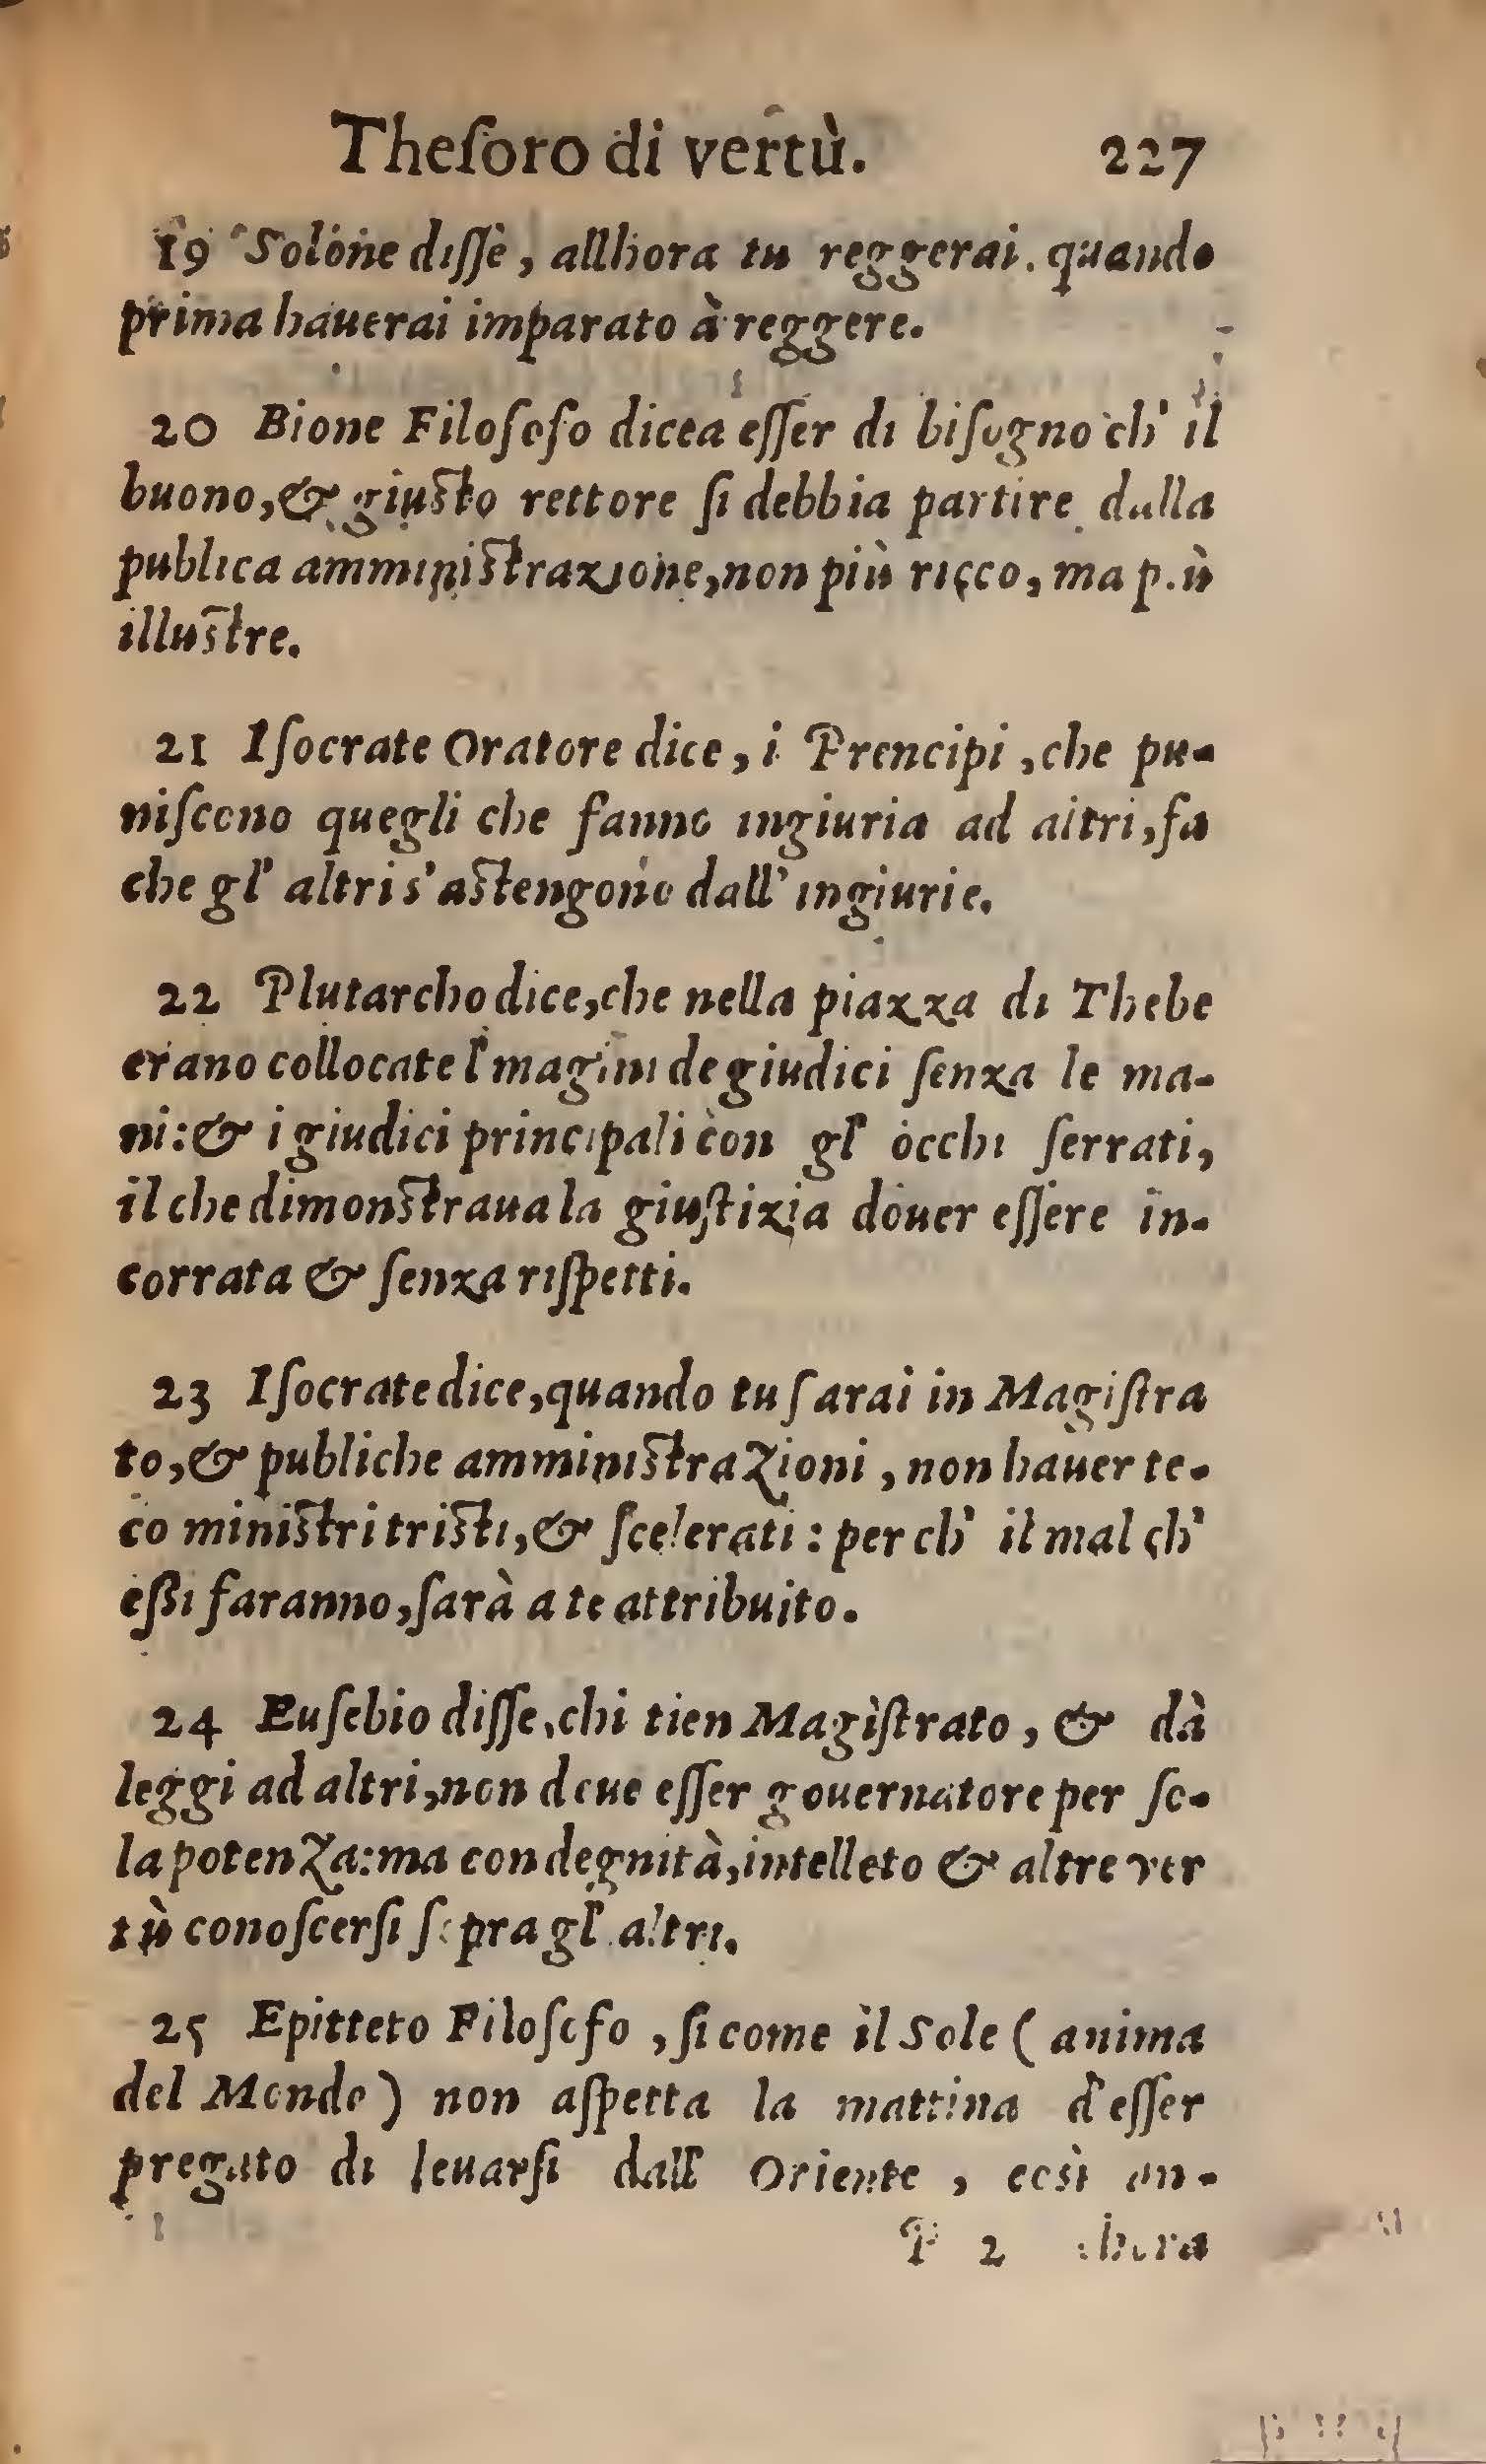 Theſoro di vertù. 227
19 Solone diſſe, allhora tu reggerai. quando
prima hauerai imparato à reggere.
20 Bione Filoſofo dicea eſſer di biſogno ch' il
buono,& giuſto rettore ſi debbia partire dalla
publica amminiſtrazione,non più ricco, ma più
illuſtre.
21 Iſocrate Oratore dice, i Prencipi, che pu-
niſcono quegli che fanno ingiuria ad altri,fa
che gl' altri s'aſtengono dall' ingiurie.
22 Plutarcho dice,che nella piazza di Thebe
erano collocate l'magini de giudici ſenza le ma-
ni:& i giudici principali con gl' occhi ſerrati,
il che dimonſtraua la giuſtizia douer eſſere in-
corrata & ſenza riſpetti.
23 Iſocrate dice,quando tu ſarai in Magiſtra
to,& publiche amminiſtrazioni, non hauer te-
co miniſtri triſti,& ſcelerati: per ch' il mal ch'
eßi faranno,ſarà a te attribuito.
24 Euſebio diſſe,chi tien Magiſtrato, & dà
leggi ad altri,non deue eſſer gouernatore per ſo-
la potenza:ma con degnità,intelleto & altre ver
tù conoſcerſi ſopra gl' altri.
25 Epitteto Filoſofo, ſi come il Sole (anima
del Mondo) non aſpetta la mattina d'eſſer
pregato di leuarſi dall' Oriente, così an-
P 2 chora